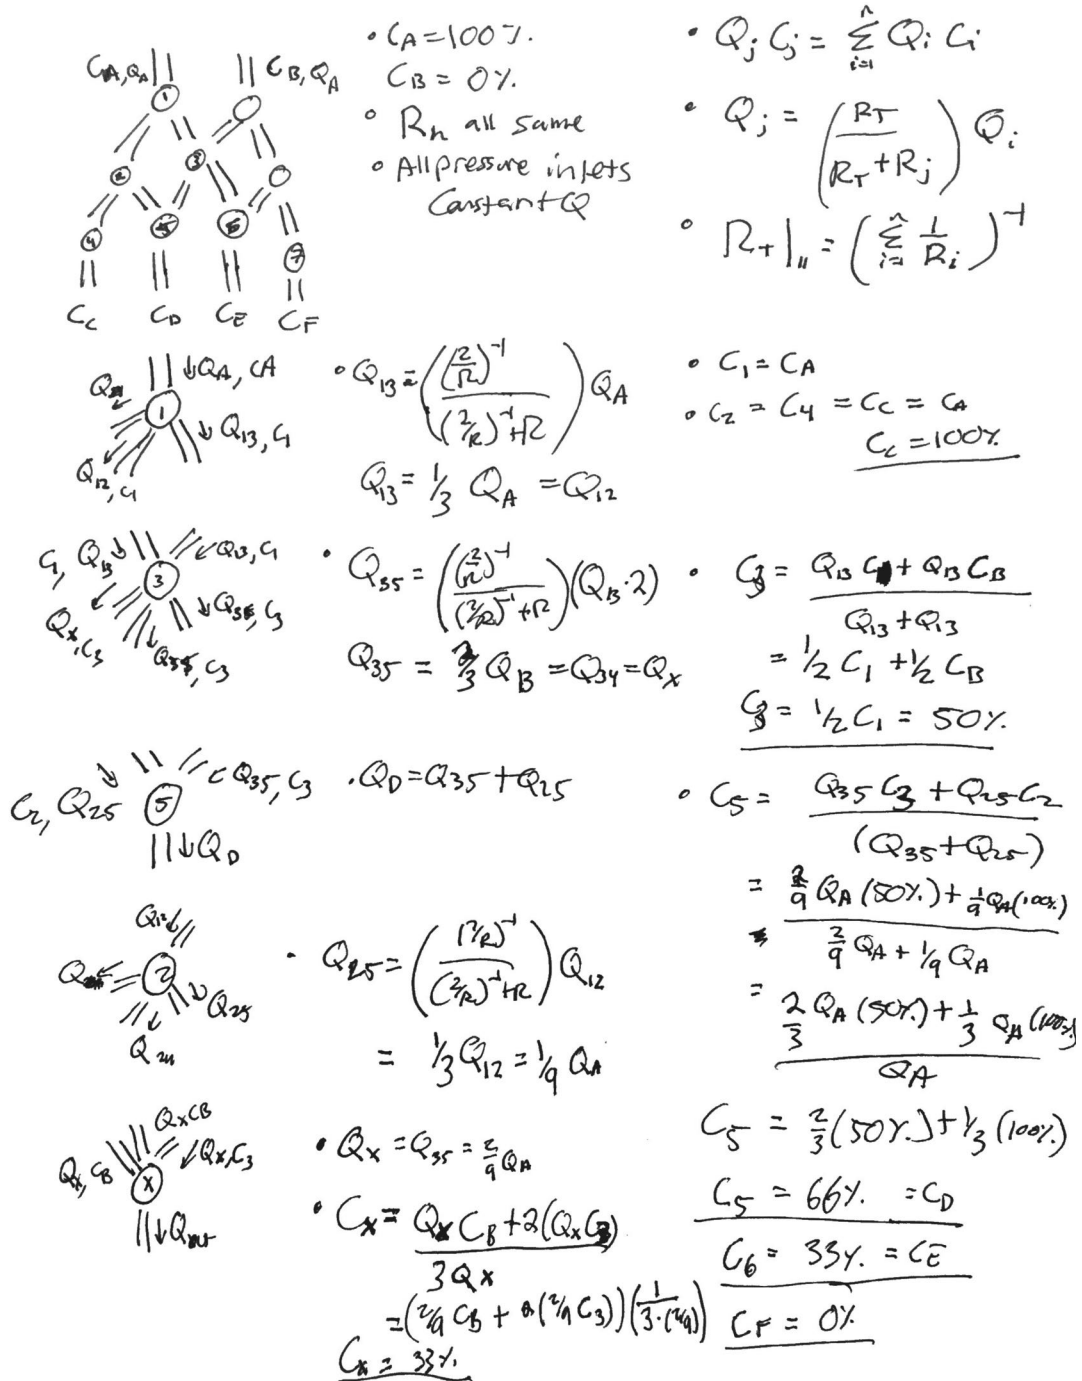 C_A, Q_A
C_B, Q_A
1
2
3
4
5
6
7
C_C C_D C_E C_F
• C_A = 100%.
C_B = 0%.
• R_n all same
• All pressure inlets
Constant Q
• Q_j C_j = Σ_{i=1}^{n} Q_i C_i
• Q_j = (R_T / (R_T + R_j)) Q_i
• R_T|_{||} = (Σ_{i=1}^{n} 1/R_i)^{-1}
↓Q_A, C_A
1
Q_13, C_1
Q_12, C_1
• Q_13 = ((2/R)^{-1} / ((2/R)^{-1} + R)) Q_A
Q_13 = 1/3 Q_A = Q_12
• C_1 = C_A
• C_2 = C_4 = C_C = C_A
C_C = 100%.
C_1, Q_13
Q_13, C_1
3
Q_x, C_3
Q_35, C_3
Q_35, C_3
• Q_35 = ((2/R)^{-1} / ((2/R)^{-1} + R)) (Q_13 · 2)
Q_35 = 2/3 Q_13 = Q_34 = Q_x
• C_3 = (Q_13 C_1 + Q_13 C_B) / (Q_13 + Q_13)
= 1/2 C_1 + 1/2 C_B
C_3 = 1/2 C_1 = 50%.
C_2, Q_25
Q_35, C_3
5
↓Q_D
• Q_D = Q_35 + Q_25
• C_5 = (Q_35 C_3 + Q_25 C_2) / (Q_35 + Q_25)
= (2/9 Q_A (50%.) + 1/9 Q_A (100%.)) / (2/9 Q_A + 1/9 Q_A)
= (2/3 Q_A (50%.) + 1/3 Q_A (100%.)) / Q_A
C_5 = 2/3 (50%.) + 1/3 (100%.)
C_5 = 66%. = C_D
C_6 = 33%. = C_E
C_F = 0%.
Q_12
2
Q_25
Q_24
• Q_25 = ((2/R)^{-1} / ((2/R)^{-1} + R)) Q_12
= 1/3 Q_12 = 1/9 Q_A
Q_x C_B
Q_x, C_B
Q_x, C_3
x
↓Q_out
• Q_x = Q_35 = 2/9 Q_A
• C_x = (Q_x C_B + 2(Q_x C_3)) / 3Q_x
= (2/9 C_B + (2/9 C_3)) (1 / (3·(2/9)))
C_x = 33%.